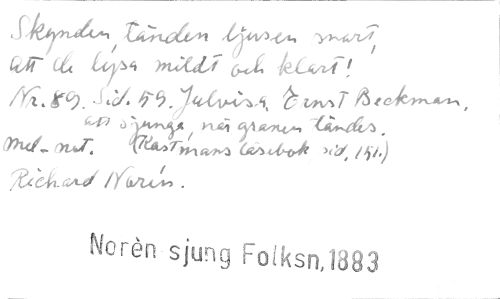 Skynden, tänden ljusen snart,
att de lysa mildt och klart!
Nr. 89. Sid. 59. Julvisa, Ernst Beckman,
att sjunga, när granen tändes.
Mel-not. (Kastmans läsebok sid, 151.)
Richard Norén.
Norèn sjung Folksn, 1883